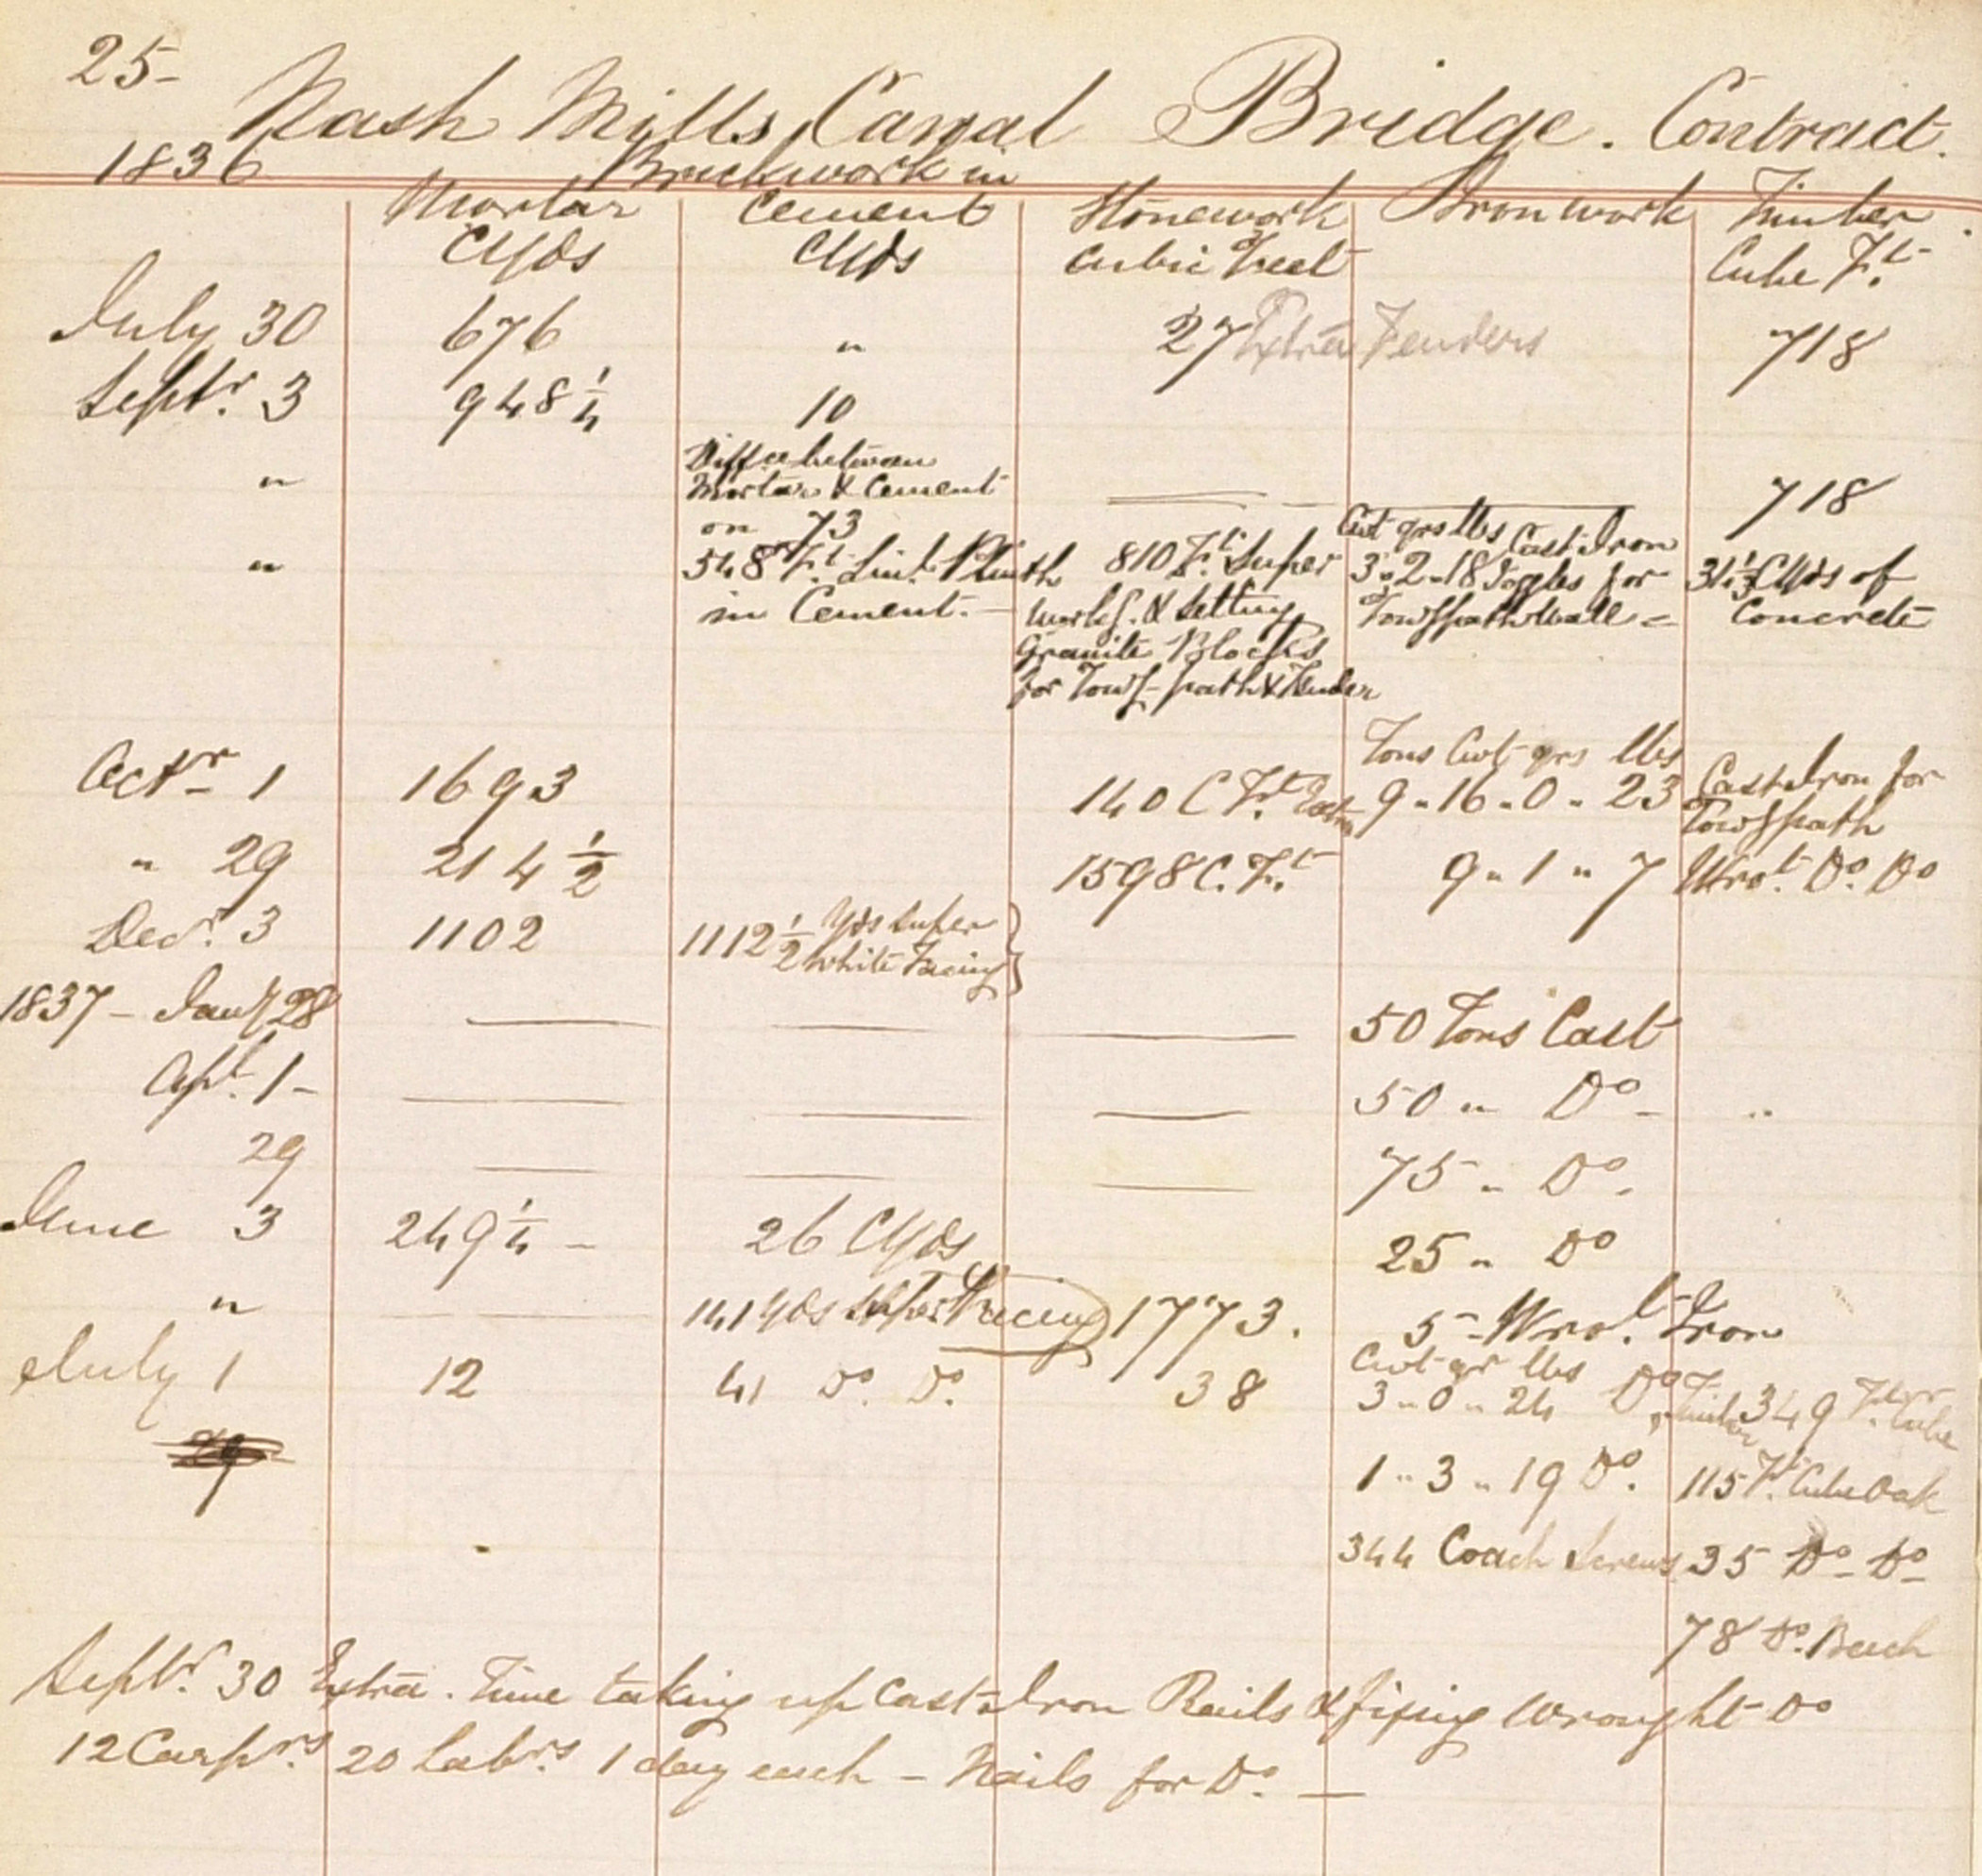 25-
Nash Mills Canal Bridge. Contract.
1836 Brickwork in
Mortar Cement Stonework Ironwork Timber
CYds CYds Cubic Feet Cube Ft.
July 30 676 " 27 Extra Fenders 718
Septr. 3 948 1/4 10
" Diffce between
Mortar & Cement 718
on 73 Cwt qrs lbs Cast Iron
" 548 Ft. Linl. Plinth 810 Ft. Super 3 " 2 " 18 Joggles for 31 1/3 CYds of
in Cement. - workg. & setting Towgpath Wall = Concrete
Granite Blocks
for Towg-path & Fender
Tons Cwt qrs lbs
Octr 1 1693 140 C Ft. Extra 9 " 16 " 0 " 23 Cast Iron for
Towgpath
" 29 214 1/2 1598 C. Ft. 9 " 1 " 7 Wrot. Do. Do
Decr. 3 1102 1112 1/2 Yds Super
White Facing
1837 - Jany 28 — — — 50 Tons Cast
Apl. 1 - — — — 50 " Do - "
29 — — — 75 " Do.
June 3 249 1/4 - 26 CYds 25 " Do
" — 141 Yds Super Facing 1773. 5 - Wrot. Iron
Cwt qr lbs
July 1 12 41 Do. Do. 38 3 " 0 " 24 Do Timber 349 Ft. Cube
29
1 " 3 " 19 Do. 115 Ft. Cube Oak
344 Coach Screws 35 Do - Do -
78 Do. Beech
Septr. 30 Extra. Time taking up Cast Iron Rails & fixing Wrought Do
12 Carprs. 20 Labrs. 1 day each - Nails for Do. —